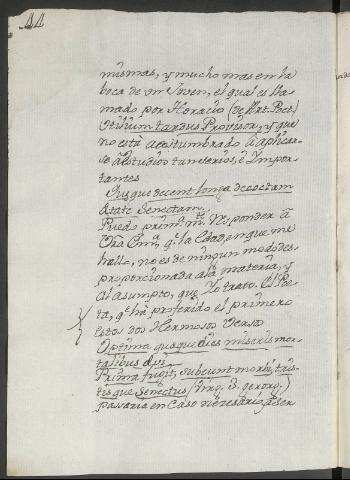 44
mismas, y mucho mas en la
boca de un Joven, el qual es lla-
mado por Horacio (de Art. Poet.)
Utilium tardus Provisor, y que
no està acostumbrado à aplicar-
se à Estudios tan serios, è Impor-
tantes
Quæque decent longa decoctam
Ætate Senectam.
Puedo primᵃ.mᵗᵉ. Responder à
Vrã Emᵃ. qᵉ. la Edad, en que me
hallo, no es de ningun modo des-
proporcionada à la materia, y
al asumpto, que Yo trato. El Poe-
ta, qᵉ. hà proferido el primero
estos dos Hermosos Versos
Optima quæque dies miseris mor-
talibus ævi
Prima fugit, subeunt morbi, tris-
tisque Senectus (Virg. 3. georg.)
pasaria en Caso necesario, à ser